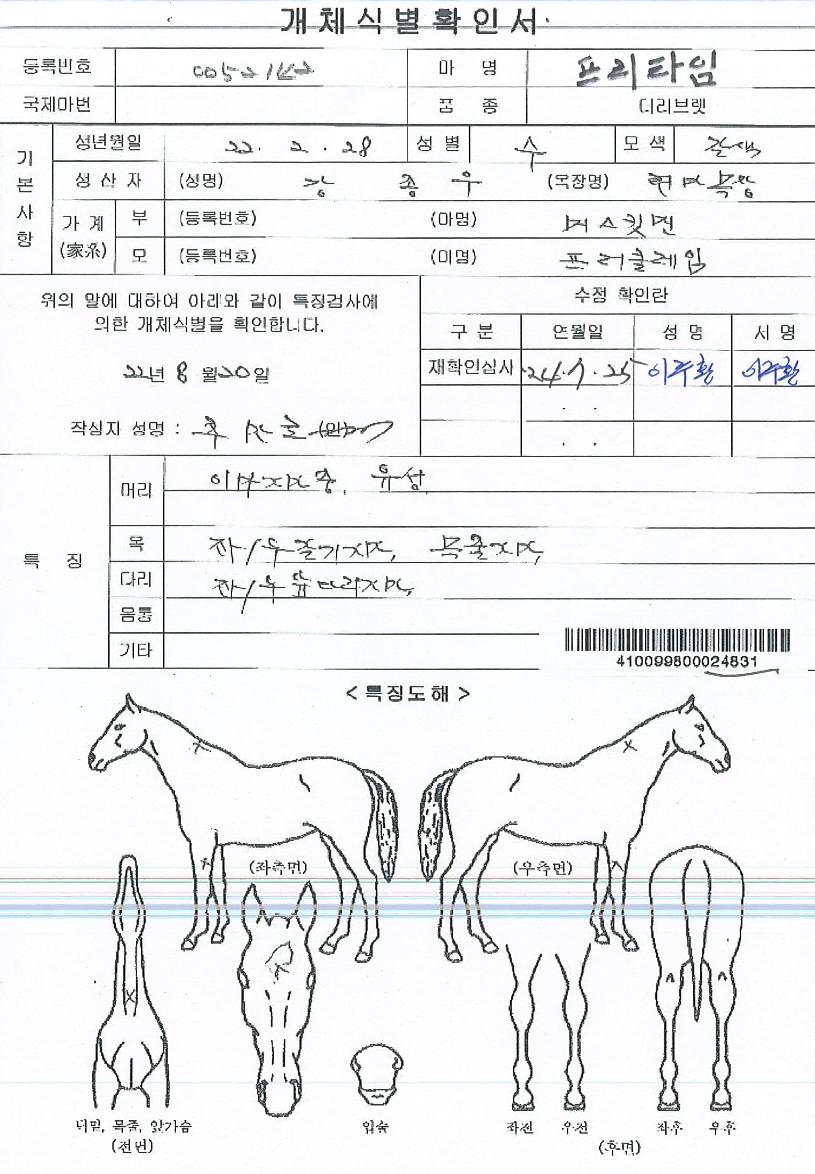 개체식별확인서
등록번호 마 명 프리타임
국제마번 품 종 더러브렛
기본사항
생년월일 22. 2. 28 성 별 수 모 색 갈색
생 산 자 (성명) 강 종 우 (목장명)
가 계 (家系) 부 (등록번호) (마명) 머스킷맨
모 (등록번호) (마명) 프리클레임
위의 말에 대하여 아래와 같이 특징검사에
의한 개체식별을 확인합니다.
22년 8월 20일
작성자 성명 :
수정 확인란
구 분 연월일 성 명 서 명
재확인심사 24. 7. 25 이주환 이주환
. .
. .
특 징
머리 이부자마중, 유성
목 좌/우줄기자마, 목줄자마,
다리 좌/우앞다리자마,
몸통
기타
410099800024831
<특징도해>
(좌측면) (우측면)
턱밑, 목줄, 앞가슴
(전면)
입술
좌전 우전 좌후 우후
(후면)